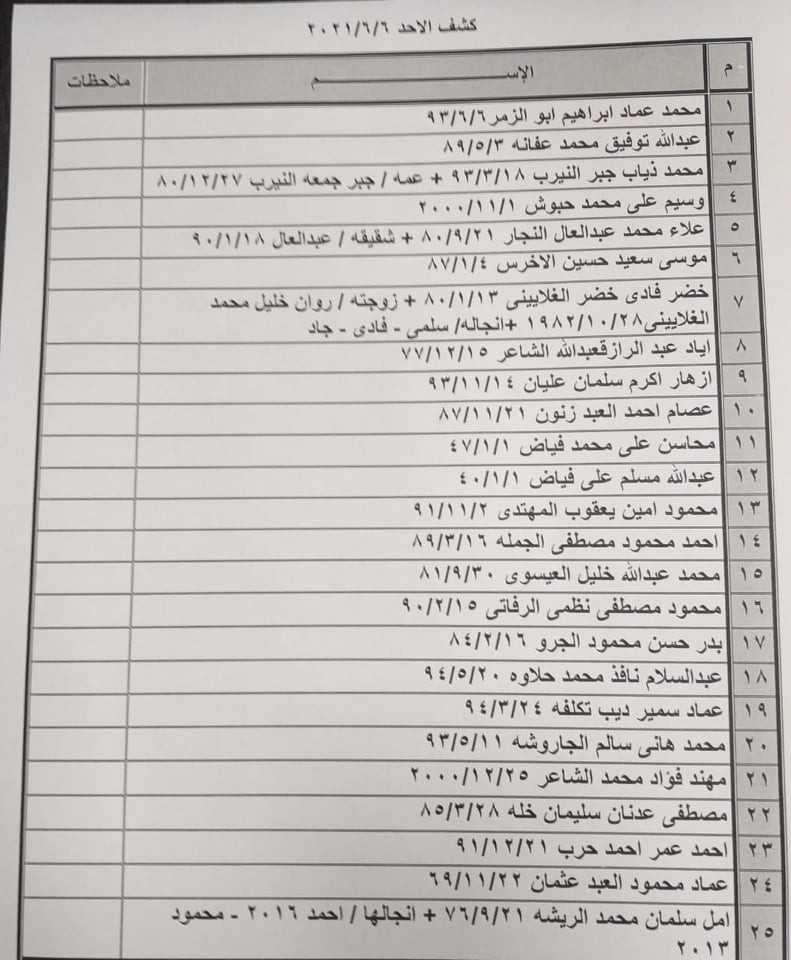 كشف الاحد ٢٠٢١/٦/٦
م الإســـــــــــــــــــم ملاحظات
١ محمد عماد ابراهيم ابو الزمر ٩٣/٦/٦
٢ عبدالله توفيق محمد عفانه ٨٩/٥/٣
٣ محمد ذياب جبر النيرب ٩٣/٣/١٨ + عمه / جبر جمعه النيرب ٨٠/١٢/٢٧
٤ وسيم على محمد حبوش ٢٠٠٠/١١/١
٥ علاء محمد عبدالعال النجار ٨٠/٩/٢١ + شقيقه / عبدالعال ٩٠/١/١٨
٦ موسى سعيد حسين الاخرس ٨٧/١/٤
٧ خضر فادى خضر الغلايينى ٨٠/١/١٣ + زوجته / روان خليل محمد
الغلايينى ١٩٨٢/١٠/٢٨ +انجاله/ سلمي - فادى - جاد
٨ اياد عبد الرازقعبدالله الشاعر ٧٧/١٢/١٥
٩ ازهار اكرم سلمان عليان ٩٣/١١/١٤
١٠ عصام احمد العبد زنون ٨٧/١١/٢١
١١ محاسن على محمد فياض ٤٧/١/١
١٢ عبدالله مسلم على فياض ٤٠/١/١
١٣ محمود امين يعقوب المهتدى ٩١/١١/٢
١٤ احمد محمود مصطفى الجمله ٨٩/٣/١٦
١٥ محمد عبدالله خليل العيسوى ٨١/٩/٣٠
١٦ محمود مصطفى نظمى الرفاتى ٩٠/٢/١٥
١٧ بدر حسن محمود الجرو ٨٤/٢/١٦
١٨ عبدالسلام نافذ محمد حلاوه ٩٤/٥/٢٠
١٩ عماد سمير ديب تكلفه ٩٤/٣/٢٤
٢٠ محمد هانى سالم الجاروشه ٩٣/٥/١١
٢١ مهند فؤاد محمد الشاعر ٢٠٠٠/١٢/٢٥
٢٢ مصطفى عدنان سليمان خله ٨٥/٣/٢٨
٢٣ احمد عمر احمد حرب ٩١/١٢/٢١
٢٤ عماد محمود العبد عثمان ٦٩/١١/٢٢
٢٥ امل سلمان محمد الريشه ٧٦/٩/٢١ + انجالها / احمد ٢٠١٦ - محمود
٢٠١٣